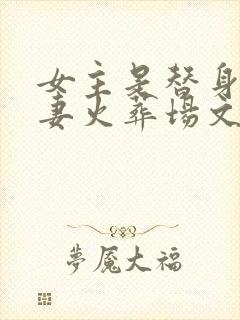 女主是替身
妻火葬场文
梦魇大福